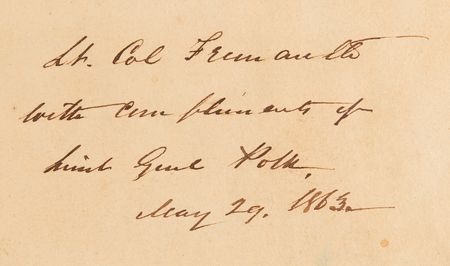 Lt. Col Fremantle
with compliments of
Lieut Genl Polk.
May 29. 1863.